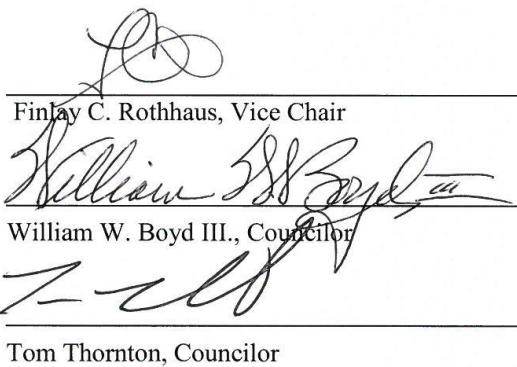 Finlay C. Rothhaus, Vice Chair
William W Boyd III
William W. Boyd III., Councilor
Tom Thornton, Councilor